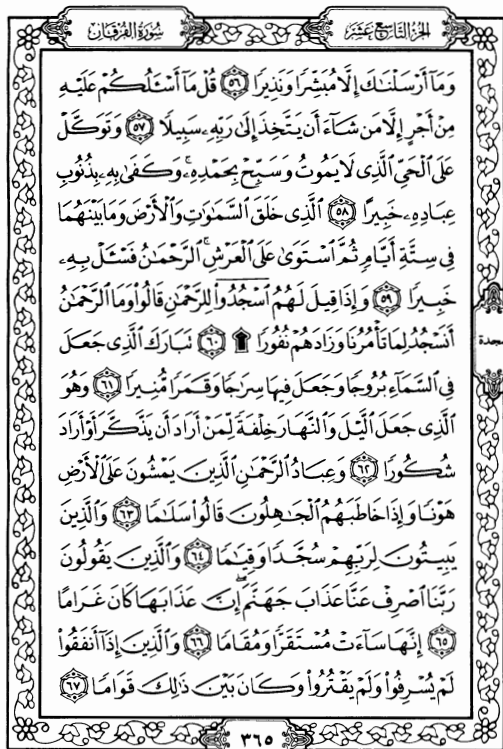 الجزء التاسع عشر
سورة الفرقان
وَمَآ أَرْسَلْنَٰكَ إِلَّا مُبَشِّرًا وَنَذِيرًا ۝٥٦ قُلْ مَآ أَسْـَٔلُكُمْ عَلَيْهِ
مِنْ أَجْرٍ إِلَّا مَن شَآءَ أَن يَتَّخِذَ إِلَىٰ رَبِّهِۦ سَبِيلًا ۝٥٧ وَتَوَكَّلْ
عَلَى ٱلْحَىِّ ٱلَّذِى لَا يَمُوتُ وَسَبِّحْ بِحَمْدِهِۦ ۚ وَكَفَىٰ بِهِۦ بِذُنُوبِ
عِبَادِهِۦ خَبِيرًا ۝٥٨ ٱلَّذِى خَلَقَ ٱلسَّمَٰوَٰتِ وَٱلْأَرْضَ وَمَا بَيْنَهُمَا
فِى سِتَّةِ أَيَّامٍ ثُمَّ ٱسْتَوَىٰ عَلَى ٱلْعَرْشِ ۚ ٱلرَّحْمَٰنُ فَسْـَٔلْ بِهِۦ
خَبِيرًا ۝٥٩ وَإِذَا قِيلَ لَهُمُ ٱسْجُدُوا۟ لِلرَّحْمَٰنِ قَالُوا۟ وَمَا ٱلرَّحْمَٰنُ
أَنَسْجُدُ لِمَا تَأْمُرُنَا وَزَادَهُمْ نُفُورًا ۩ ۝٦٠ تَبَارَكَ ٱلَّذِى جَعَلَ
فِى ٱلسَّمَآءِ بُرُوجًا وَجَعَلَ فِيهَا سِرَٰجًا وَقَمَرًا مُّنِيرًا ۝٦١ وَهُوَ
ٱلَّذِى جَعَلَ ٱلَّيْلَ وَٱلنَّهَارَ خِلْفَةً لِّمَنْ أَرَادَ أَن يَذَّكَّرَ أَوْ أَرَادَ
شُكُورًا ۝٦٢ وَعِبَادُ ٱلرَّحْمَٰنِ ٱلَّذِينَ يَمْشُونَ عَلَى ٱلْأَرْضِ
هَوْنًا وَإِذَا خَاطَبَهُمُ ٱلْجَٰهِلُونَ قَالُوا۟ سَلَٰمًا ۝٦٣ وَٱلَّذِينَ
يَبِيتُونَ لِرَبِّهِمْ سُجَّدًا وَقِيَٰمًا ۝٦٤ وَٱلَّذِينَ يَقُولُونَ
رَبَّنَا ٱصْرِفْ عَنَّا عَذَابَ جَهَنَّمَ ۖ إِنَّ عَذَابَهَا كَانَ غَرَامًا
۝٦٥ إِنَّهَا سَآءَتْ مُسْتَقَرًّا وَمُقَامًا ۝٦٦ وَٱلَّذِينَ إِذَآ أَنفَقُوا۟
لَمْ يُسْرِفُوا۟ وَلَمْ يَقْتُرُوا۟ وَكَانَ بَيْنَ ذَٰلِكَ قَوَامًا ۝٦٧
٣٦٥